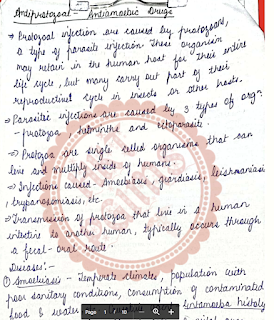 Antiprotozoal - Antiamoebic Drugs
⇒ Protozoal infection are caused by protozoans,
a type of parasite infection. These organism
may retain in the human host for their entire
life cycle, but many carry out part of their
reproductinet cycle in insects or other hosts.
⇒ Parasitic infections are caused by 3 types of orgn.
- protozoa, helminths and ectoparasite.
⇒ Protozoa are single celled organisms that can
live and multiply inside of humans.
⇒ Infections caused - Amoebiasis, giardiasis, leishmaniasis
trypanosomiasis, etc
⇒ Transmission of protozoa that live in a human
intestine to another human, typically occurs through
a fecal-oral route.
Diseases:-
① Amoebiasis - Temperate climates, population with
poor sanitary conditions, consumption of contaminated
food & water Entamoeba histoly
Page 1 / 10